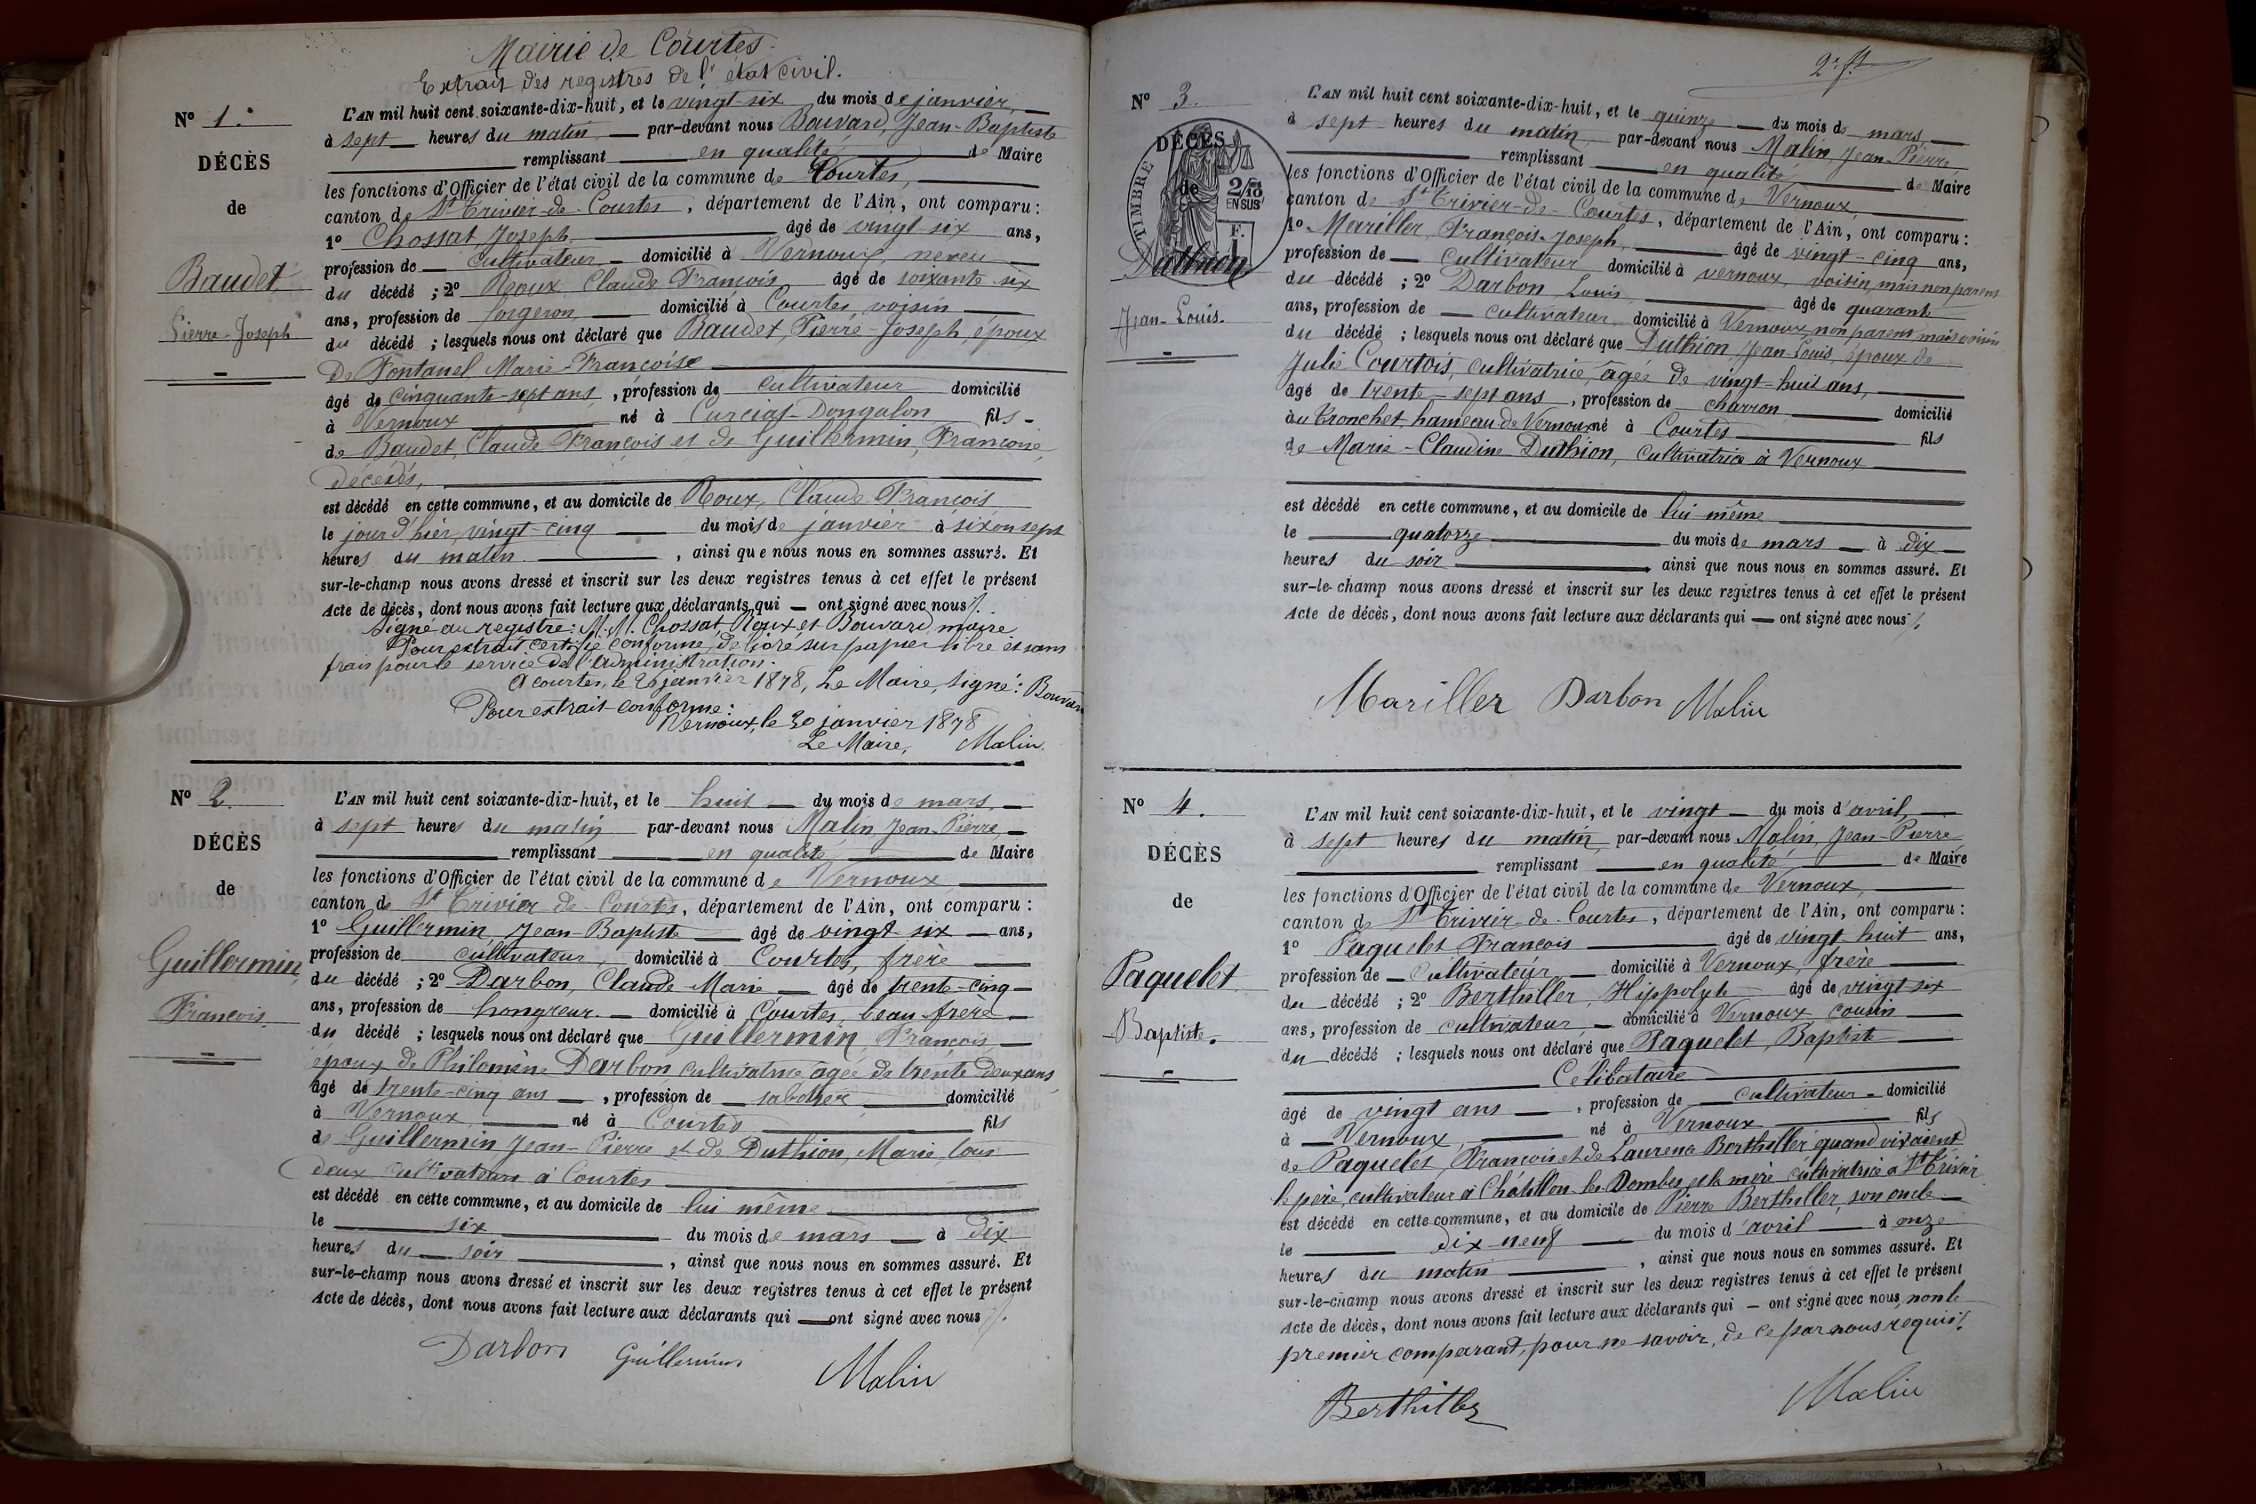 Mairie de Courtes.
Extrait des registres de l'état civil.
N° 1.
DÉCÈS
de
Baudet
Pierre-Joseph
L'AN mil huit cent soixante-dix-huit, et le vingt-six du mois de janvier
à sept heures du matin par-devant nous Bouvard, Jean-Baptiste
remplissant en qualité de Maire
les fonctions d'Officier de l'état civil de la commune de Courtes,
canton de St Trivier-de-Courtes, département de l'Ain, ont comparu :
1° Chossat Joseph âgé de vingt-six ans,
profession de cultivateur domicilié à Vernoux, neveu
du décédé ; 2° Roux Claude François âgé de soixante six
ans, profession de forgeron domicilié à Courtes, voisin
du décédé ; lesquels nous ont déclaré que Baudet, Pierre-Joseph, époux
De Fontanel Marie-Françoise
âgé de cinquante-sept ans, profession de cultivateur domicilié
à Vernoux né à Curciat-Dongalon fils
de Baudet, Claude François et de Guillermin, Françoise,
décédés,
est décédé en cette commune, et au domicile de Roux, Claude François
le jour d'hier, vingt-cinq du mois de janvier à six ou sept
heures du matin, ainsi que nous nous en sommes assuré. Et
sur-le-champ nous avons dressé et inscrit sur les deux registres tenus à cet effet le présent
Acte de décès, dont nous avons fait lecture aux déclarants qui — ont signé avec nous.
Signé au registre: M.M. Chossat Roux et Bouvard, maire
Pour extrait certifié conforme, délivré sur papier libre et sans
frais pour le service de l'administration.
A courtes, le 26 janvier 1878, Le Maire, signé: Bouvard
Pour extrait conforme:
Vernoux, le 30 janvier 1878
Le Maire, Malin.
N° 2.
DÉCÈS
de
Guillermin,
François.
L'AN mil huit cent soixante-dix-huit, et le huit du mois de mars
à sept heures du matin par-devant nous Malin, Jean-Pierre,
remplissant en qualité de Maire
les fonctions d'Officier de l'état civil de la commune de Vernoux
canton de St Trivier de Courtes, département de l'Ain, ont comparu :
1° Guillermin Jean-Baptiste âgé de vingt-six ans,
profession de cultivateur, domicilié à Courtes, frère
du décédé ; 2° Darbon, Claude Marie âgé de trente-cinq
ans, profession de hongreur domicilié à Courtes, beau-frère
du décédé ; lesquels nous ont déclaré que Guillermin François,
époux de Philomène Darbon cultivatrice âgée de trente deux ans
âgé de trente-cinq ans, profession de sabotier domicilié
à Vernoux né à Courtes fils
de Guillermin Jean-Pierre et de Duthion, Marie, tous
deux cultivateurs à Courtes
est décédé en cette commune, et au domicile de lui même
le six du mois de mars à dix
heures du soir, ainsi que nous nous en sommes assuré. Et
sur-le-champ nous avons dressé et inscrit sur les deux registres tenus à cet effet le présent
Acte de décès, dont nous avons fait lecture aux déclarants qui — ont signé avec nous.
Darbon Guillermin Malin
2e ft
N° 3.
DÉCÈS
de
TIMBRE
2/10
EN SUS
F.
Duthion
Jean-Louis.
L'AN mil huit cent soixante-dix-huit, et le quinze du mois de mars
à sept heures du matin, par-devant nous Malin, Jean-Pierre
remplissant en qualité de Maire
les fonctions d'Officier de l'état civil de la commune de Vernoux
canton de St Trivier-de-Courtes, département de l'Ain, ont comparu :
1° Mariller, François-Joseph, âgé de vingt-cinq ans,
profession de cultivateur domicilié à vernoux, voisin, mais non parent
du décédé ; 2° Darbon Louis âgé de quarante
ans, profession de cultivateur domicilié à Vernoux, non parent, mais voisin
du décédé ; lesquels nous ont déclaré que Duthion Jean-Louis, époux de
Julie Courtois, cultivatrice, âgée de vingt-huit ans,
âgé de trente-sept ans, profession de charron domicilié
au Tronchet, hameau de Vernoux né à Courtes fils
de Marie-Claudine Duthion, cultivatrice à Vernoux
est décédé en cette commune, et au domicile de lui-même
le quatorze du mois de mars à dix
heures du soir, ainsi que nous nous en sommes assuré. Et
sur-le-champ nous avons dressé et inscrit sur les deux registres tenus à cet effet le présent
Acte de décès, dont nous avons fait lecture aux déclarants qui — ont signé avec nous.
Mariller Darbon Malin
N° 4.
DÉCÈS
de
Paquelet
Baptiste.
L'AN mil huit cent soixante-dix-huit, et le vingt du mois d'avril
à sept heures du matin, par-devant nous Malin, Jean-Pierre
remplissant en qualité de Maire
les fonctions d'Officier de l'état civil de la commune de Vernoux,
canton de St Trivier-de-Courtes, département de l'Ain, ont comparu :
1° Paquelet François âgé de vingt huit ans,
profession de cultivateur domicilié à Vernoux, frère
du décédé ; 2° Berthiller, Hippolyte âgé de vingt-six
ans, profession de cultivateur, domicilié à Vernoux cousin
du décédé ; lesquels nous ont déclaré que Paquelet, Baptiste
Célibataire
âgé de vingt ans, profession de cultivateur domicilié
à Vernoux, né à Vernoux fils
de Paquelet, François et de Laurence Berthiller quand vivaient
le père, cultivateur à Châtillon les Dombes et la mère cultivatrice à St Trivier
est décédé en cette commune, et au domicile de Pierre Berthiller, son oncle
le dix neuf du mois d'avril à onze
heures du matin, ainsi que nous nous en sommes assuré. Et
sur-le-champ nous avons dressé et inscrit sur les deux registres tenus à cet effet le présent
Acte de décès, dont nous avons fait lecture aux déclarants qui — ont signé avec nous, non le
premier comparant, pour ne savoir, de ce par nous requis.
Berthiller Malin